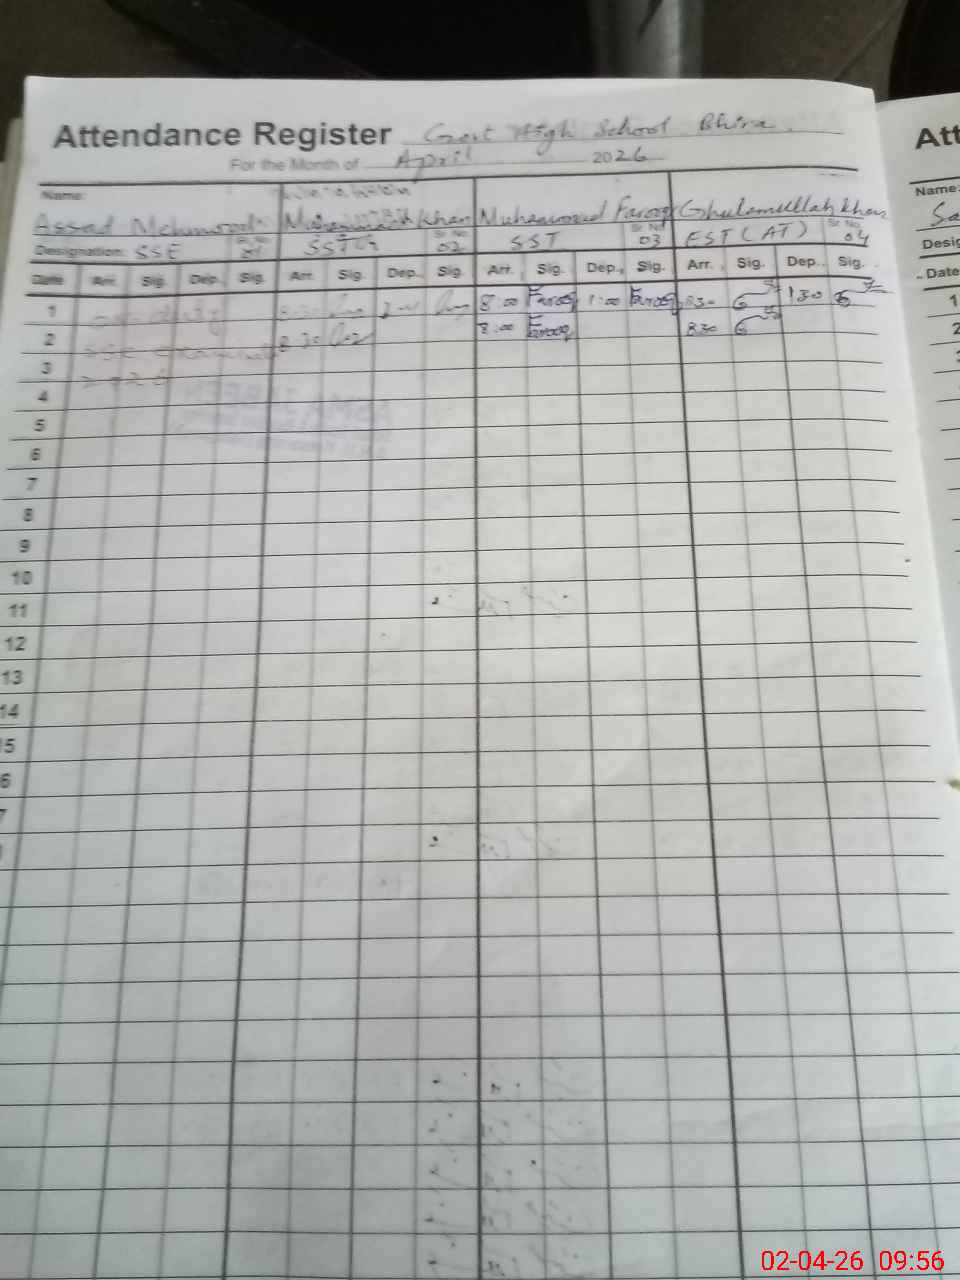 Attendance Register Govt High School Bhira
For the Month of April 2026
Name:
Assad Mehmood Khan Muhammad Farooq Ghulamullah Khan
Designation: SSE Sr No. 01 SST Sr No. 02 SST Sr No. 03 EST (AT) Sr No. 04
Date Arr. Sig. Dep. Sig. Arr. Sig. Dep. Sig. Arr. Sig. Dep., Sig. Arr. Sig. Dep.. Sig.
1 on duty 8:30 8:00 Farooq 1:00 Farooq 830 130
2 8 30 8:00 Farooq 830
3 2026
4
5
6
7
8
9
10
11
12
13
14
5
6
7
Att
Name:
Sa
Desig
Date
1
2
02-04-26 09:56